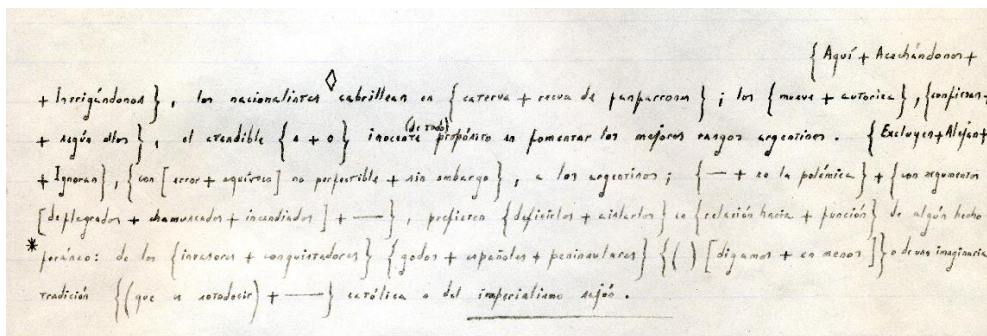 { Aquí + Acechándonos +
+ Intrigándonos } , los nacionalistas ◊ cabrillean en { caterva + recua de fanfarrones } ; los { mueve + autoriza } , { confiesan +
+ según ellos } , el atendible { e + o } inocente (de todo) propósito de fomentar los mejores rasgos argentinos . { Excluyen + Alejan +
+ Ignoran } , { con [ error + equívoco ] no perfectible + sin embargo } , a los argentinos ; { — + en la polémica } + { con argumentos
[ deflagrados + chamuscados + incendiados ] + — } , prefieren { definirlos + aislarlos } en { relación hacia + función } de algún hecho
* foráneo : de los { invasores + conquistadores } { godos + españoles + peninsulares } { ( ) [ digamos + en menos ] } o de una imaginaria
tradición { ( que es sotodecir ) + — } católica o del imperialismo sajón .